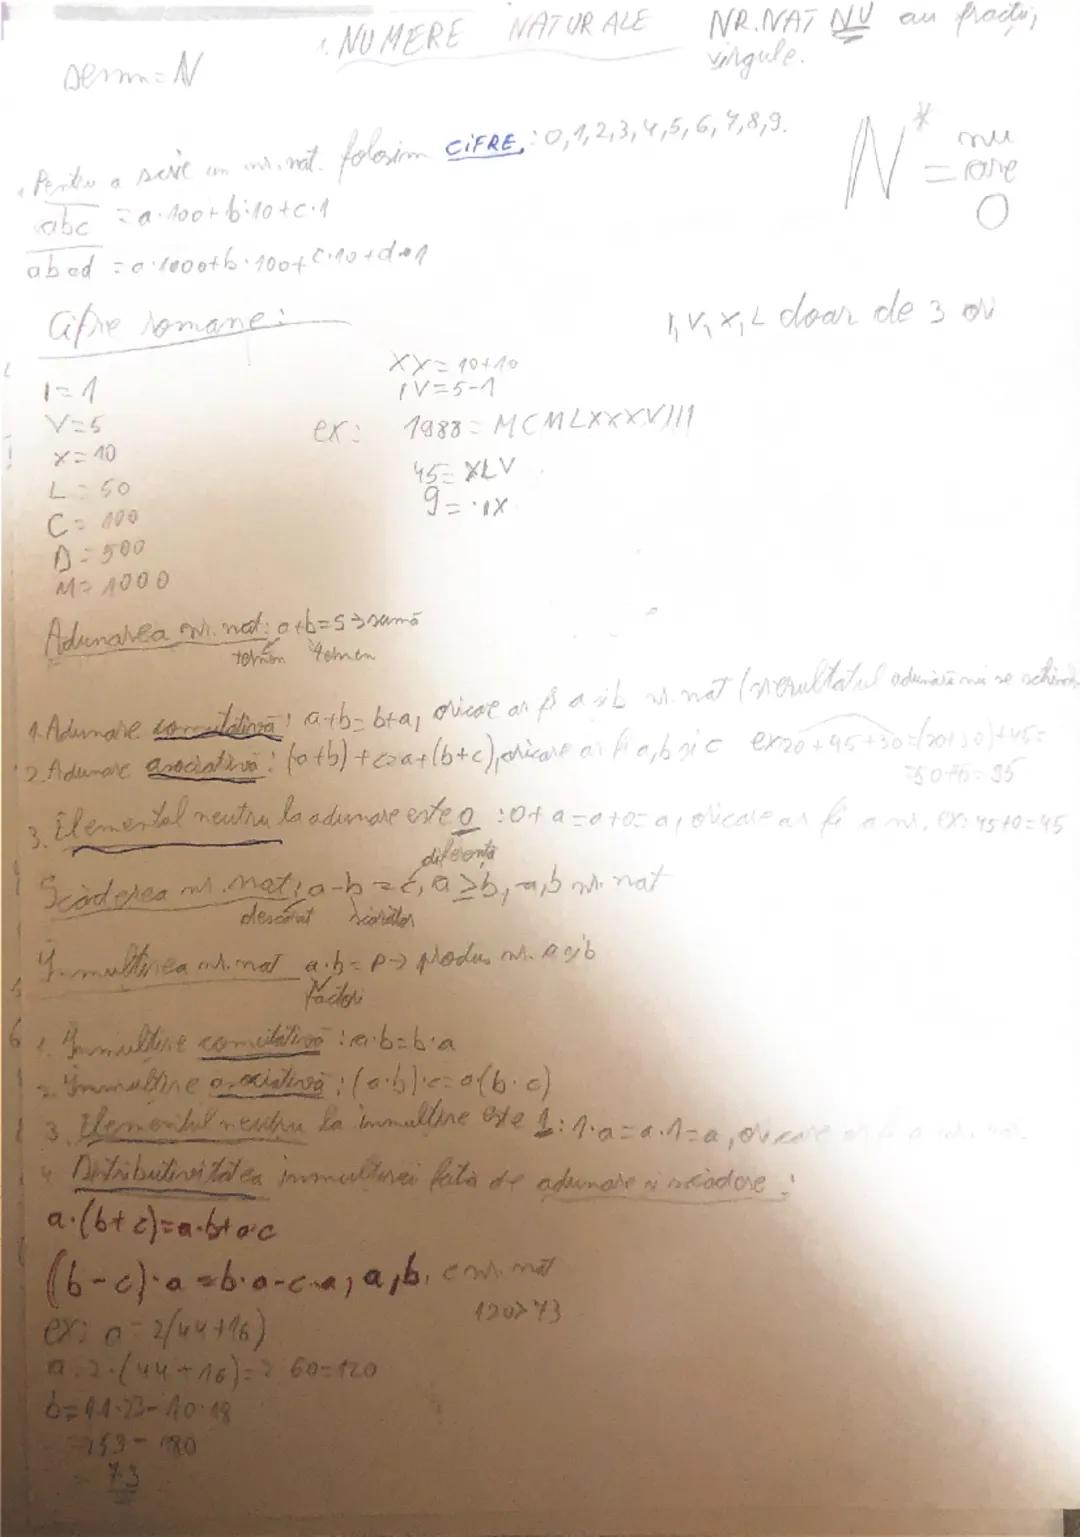 1. NUMERE NATURALE
NR. NAT NU au fracții,
virgule.
Semn = N
N* = nu are 0
Pentru a scrie un nr. nat. folosim CIFRE: 0,1,2,3,4,5,6,7,8,9.
abc = a·100+b·10+c·1
abcd = a·1000+b·100+c·10+d·1
Cifre romane:
I, V, X, L doar de 3 ori
I=1
V=5
X=10
L=50
C=100
D=500
M=1000
XX=10+10
IV=5-1
ex: 1988 = MCMLXXXVIII
45= XLV
9= IX
Adunarea nr. nat: a+b=S→sumă
termen termen
1. Adunare comutativă: a+b=b+a, oricare ar fi a și b nr. nat (rezultatul adunării nu se schimbă
2. Adunare asociativă: (a+b)+c=a+(b+c), oricare ar fi a,b și c ex: 20+45+30=(20+30)+45=
=50+45=95
3. Elementul neutru la adunare este 0 : 0+a=a+0=a, oricare ar fi a nr. ex: 45+0=45
diferență
Scăderea nr. nat: a-b=c, a≥b, a,b nr. nat
descăzut scăzător
Înmulțirea nr. nat a·b=P→ produs nr. a și b
factori
1. Înmulțire comutativă: a·b=b·a
2. Înmulțire asociativă: (a·b)·c=a(b·c)
3. Elementul neutru la înmulțire este 1: 1·a=a·1=a, oricare ar fi a nr. nat.
4. Distributivitatea înmulțirii față de adunare și scădere:
a·(b+c)=a·b+a·c
(b-c)·a=b·a-c·a, a,b, c nr. nat
120>73
ex: a=2(44+16)
a=2·(44+16)=2·60=120
b=11·23-10·18
=253-180
=73